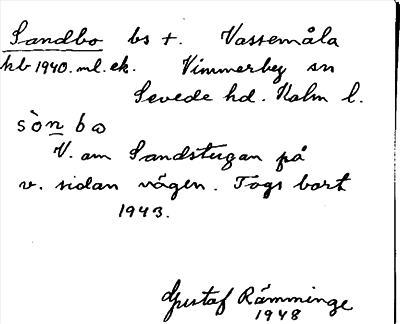 Sandbo bs †. Vassemåla
kb 1940. ml. ek. Vimmerby sn
Sevede hd. Kalm l.
sònbω
V. om Sandstugan på
v. sidan vägen. Togs bort
1943.
Gustaf Rämminge
1948